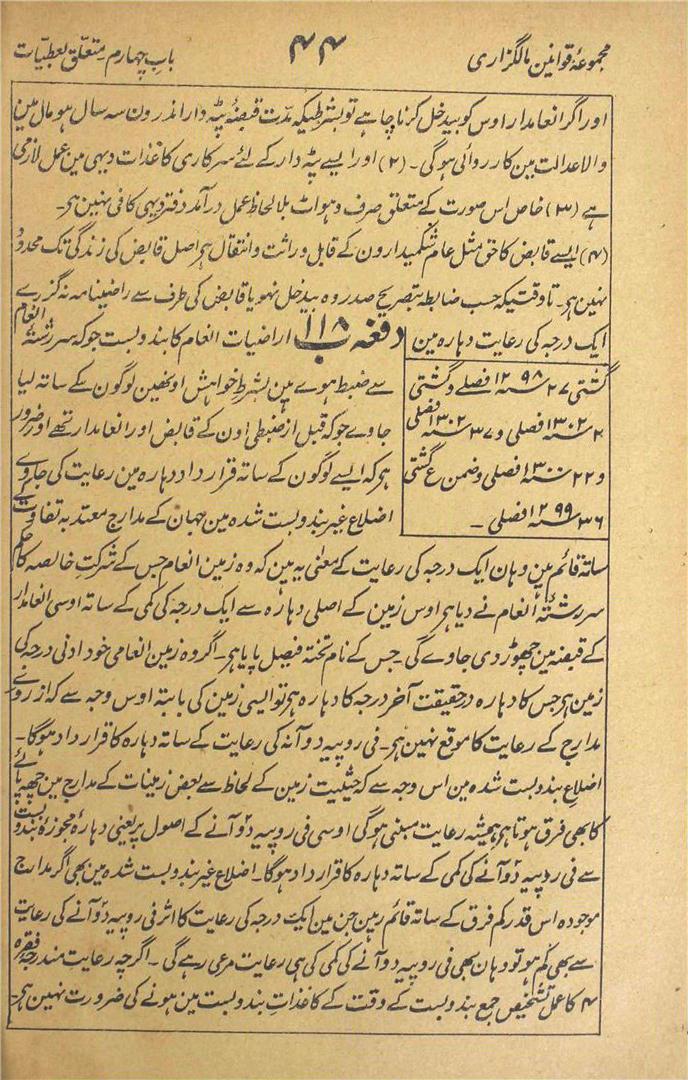 مجموعۂ قوانین مالگزاری
۴۴
باب چہارم متعلق بعطیات
اور اگر انعامدار اوس کو بیدخل کرنا چاہے تو بشرطیکہ مدّت قبضۂ پٹہ دار اندرون سہ سال ہو مال مین
والا عدالت مین کارروائی ہوگی۔ (۲) اور ایسے پٹہ دار کے لئے سرکاری کاغذات دیہی مین عمل لازمی
ہے (۳) خاص اس صورت کے متعلق صرف وہواٹ بلا لحاظ عمل درآمد دفتر دیہی کافی نہین ہی۔
(۴) ایسے قابض کا حق مثل عام شکمیدارون کے قابل وراثت و انتقال ہی اصل قابض کی زندگی تک محدود
نہین ہی۔ تا وقتیکہ حسب ضابطہ بتصریح صدر وہ بیدخل نہو یا قابض کی طرف سے راضینامہ نہ گزرے
دفعہ ۱۱۸ اراضیات انعام کا بندوبست جو کہ سررشتۂ انعام
ایک درجہ کی رعایت دہارہ مین
گشتی ۲۷ سنہ ۱۲۹۸ فصلے و گشتی
۲ سنہ ۱۳۰۲ فصلی و ۳۷ سنہ ۱۳۰۲ فصلی
و ۲۲ سنہ ۱۳۰۰ فصلی و ضمن ع گشتی
۳۶ سنہ ۱۲۹۹ فصلی ۔
سے ضبط ہوے ہین بشرط خواہش اونھین لوگون کے ساتہ لیا
جاوے جو کہ قبل از ضبطی اون کے قابض اور انعامدار تھے اور ضرور
ہی کہ ایسے لوگون کے ساتہ قرار داد دہارہ مین رعایت کی جاوے
اضلاع غیر بندوبست شدہ مین جہان کے مدارج معتد بہ تفاوت کے
ساتہ قائم ہین وہان ایک درجہ کی رعایت کے معنی یہ ہین کہ وہ زمین انعام جس کے شرکت خالصہ کا حکم
سررشتۂ انعام نے دیا ہی اوس زمین کے اصلی دہارہ سے ایک درجہ کی کمی کے ساتہ اوسی انعامدار
کے قبضہ مین چھوڑ دی جاوے گی۔ جس کے نام تختہ فیصل پایا ہی۔ اگر وہ زمین انعامی خود ادنی درجہ کی
زمین ہی جس کا دہارہ درحقیقت آخر درجہ کا دہارہ ہی تو ایسی زمین کی بابتہ اوس وجہ سے کہ از روے
مدارج کے رعایت کا موقع نہین ہی۔ فی روپیہ دو آنہ کی رعایت کے ساتہ دہارہ کا قرار داد ہوگا۔
اضلاع بندوبست شدہ مین اس وجہ سے کہ حیثیت زمین کے لحاظ سے بعض زمینات کے مدارج مین چھ پائے
کا بھی فرق ہوتا ہی ہمیشہ رعایت مبنی ہوگی اوسی فی روپیہ دو آنے کے اصول پر یعنی دہارہ مجوزہ بندوبست
سے فی روپیہ دو آنے کی کمی کے ساتہ دہارہ کا قرار داد ہوگا۔ اضلاع غیر بندوبست شدہ مین بھی اگر مدارج
موجودہ اس قدر کم فرق کے ساتہ قائم رہین جن مین ایک درجہ کی رعایت کا اثر فی روپیہ دو آنے کی رعایت
سے بھی کم ہو تو وہان بھی فی روپیہ دو آنے کی کمی کی ہی رعایت مرعی رہے گی۔ اگرچہ رعایت مندرجہ فقرہ
۴ کا عمل تشخیص جمع بندوبست کے وقت کے کاغذات بندوبست مین ہونے کی ضرورت نہین ہی۔